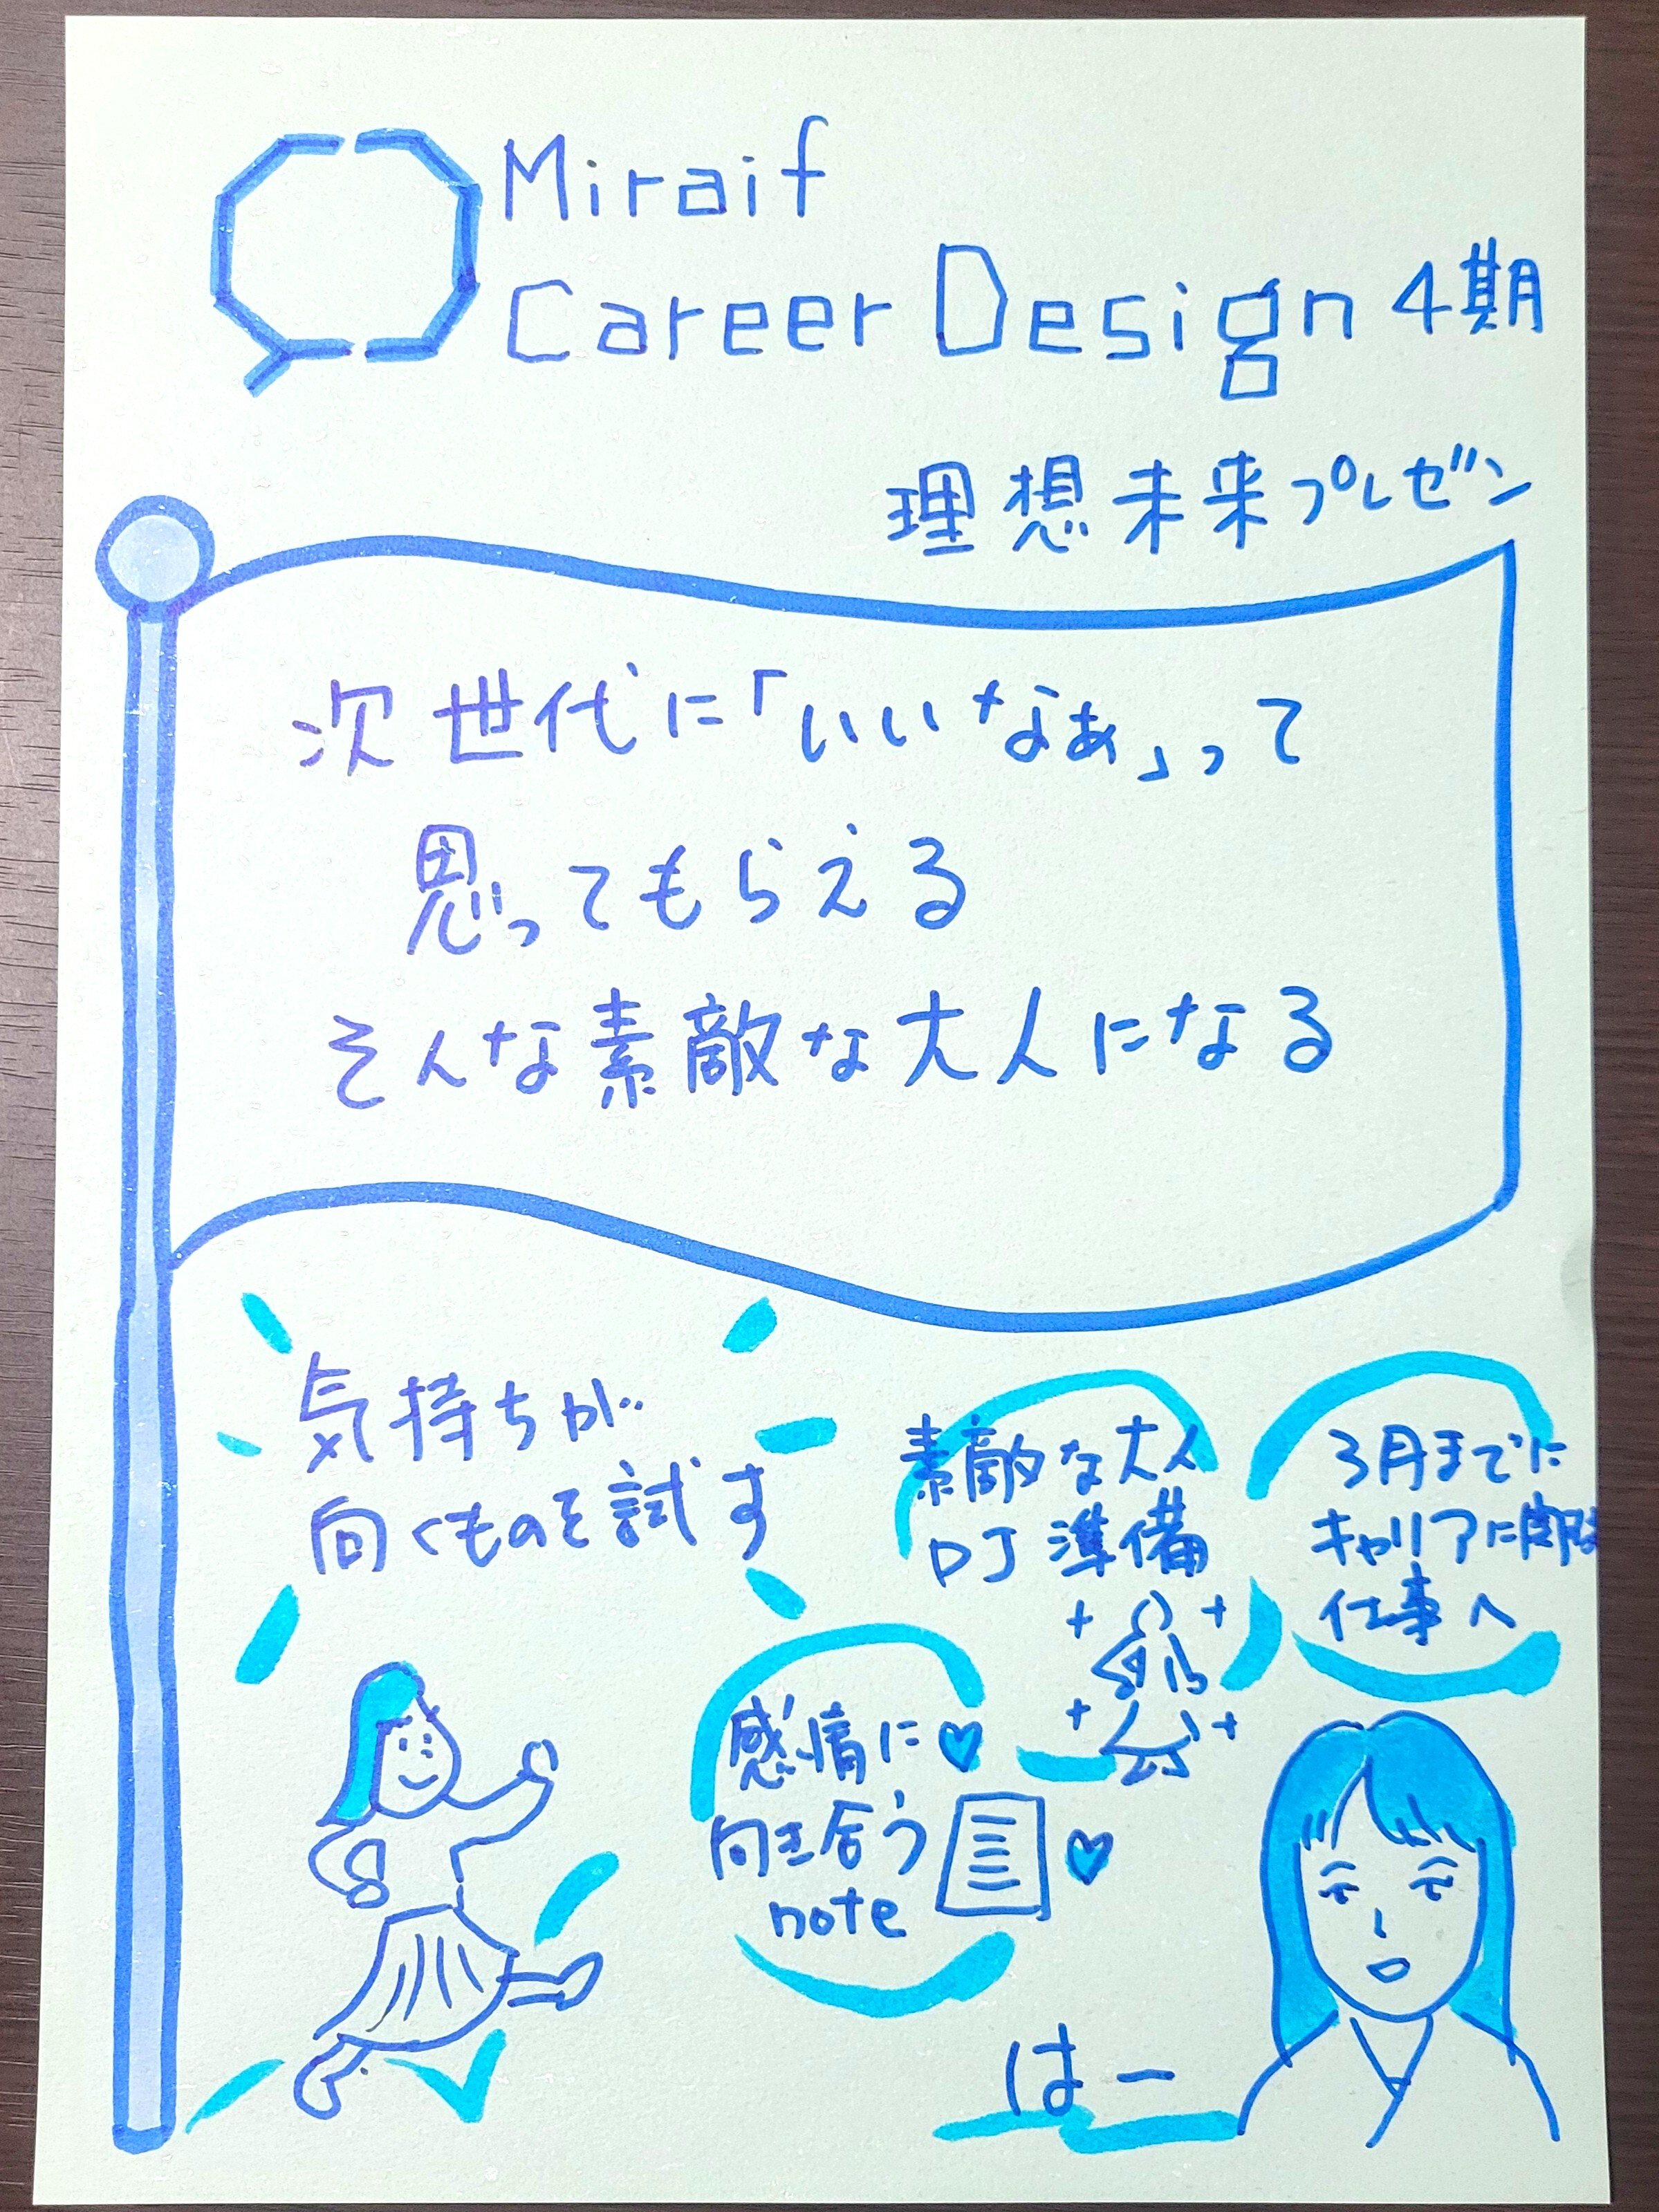 Miraif
Career Design 4期
理想未来プレゼン
次世代に「いいなぁ」って
思ってもらえる
そんな素敵な大人になる
気持ちが
向くものを試す
素敵な大人
DJ 準備
3月までに
キャリアに関係
仕事へ
感情に
向き合う
note
はー